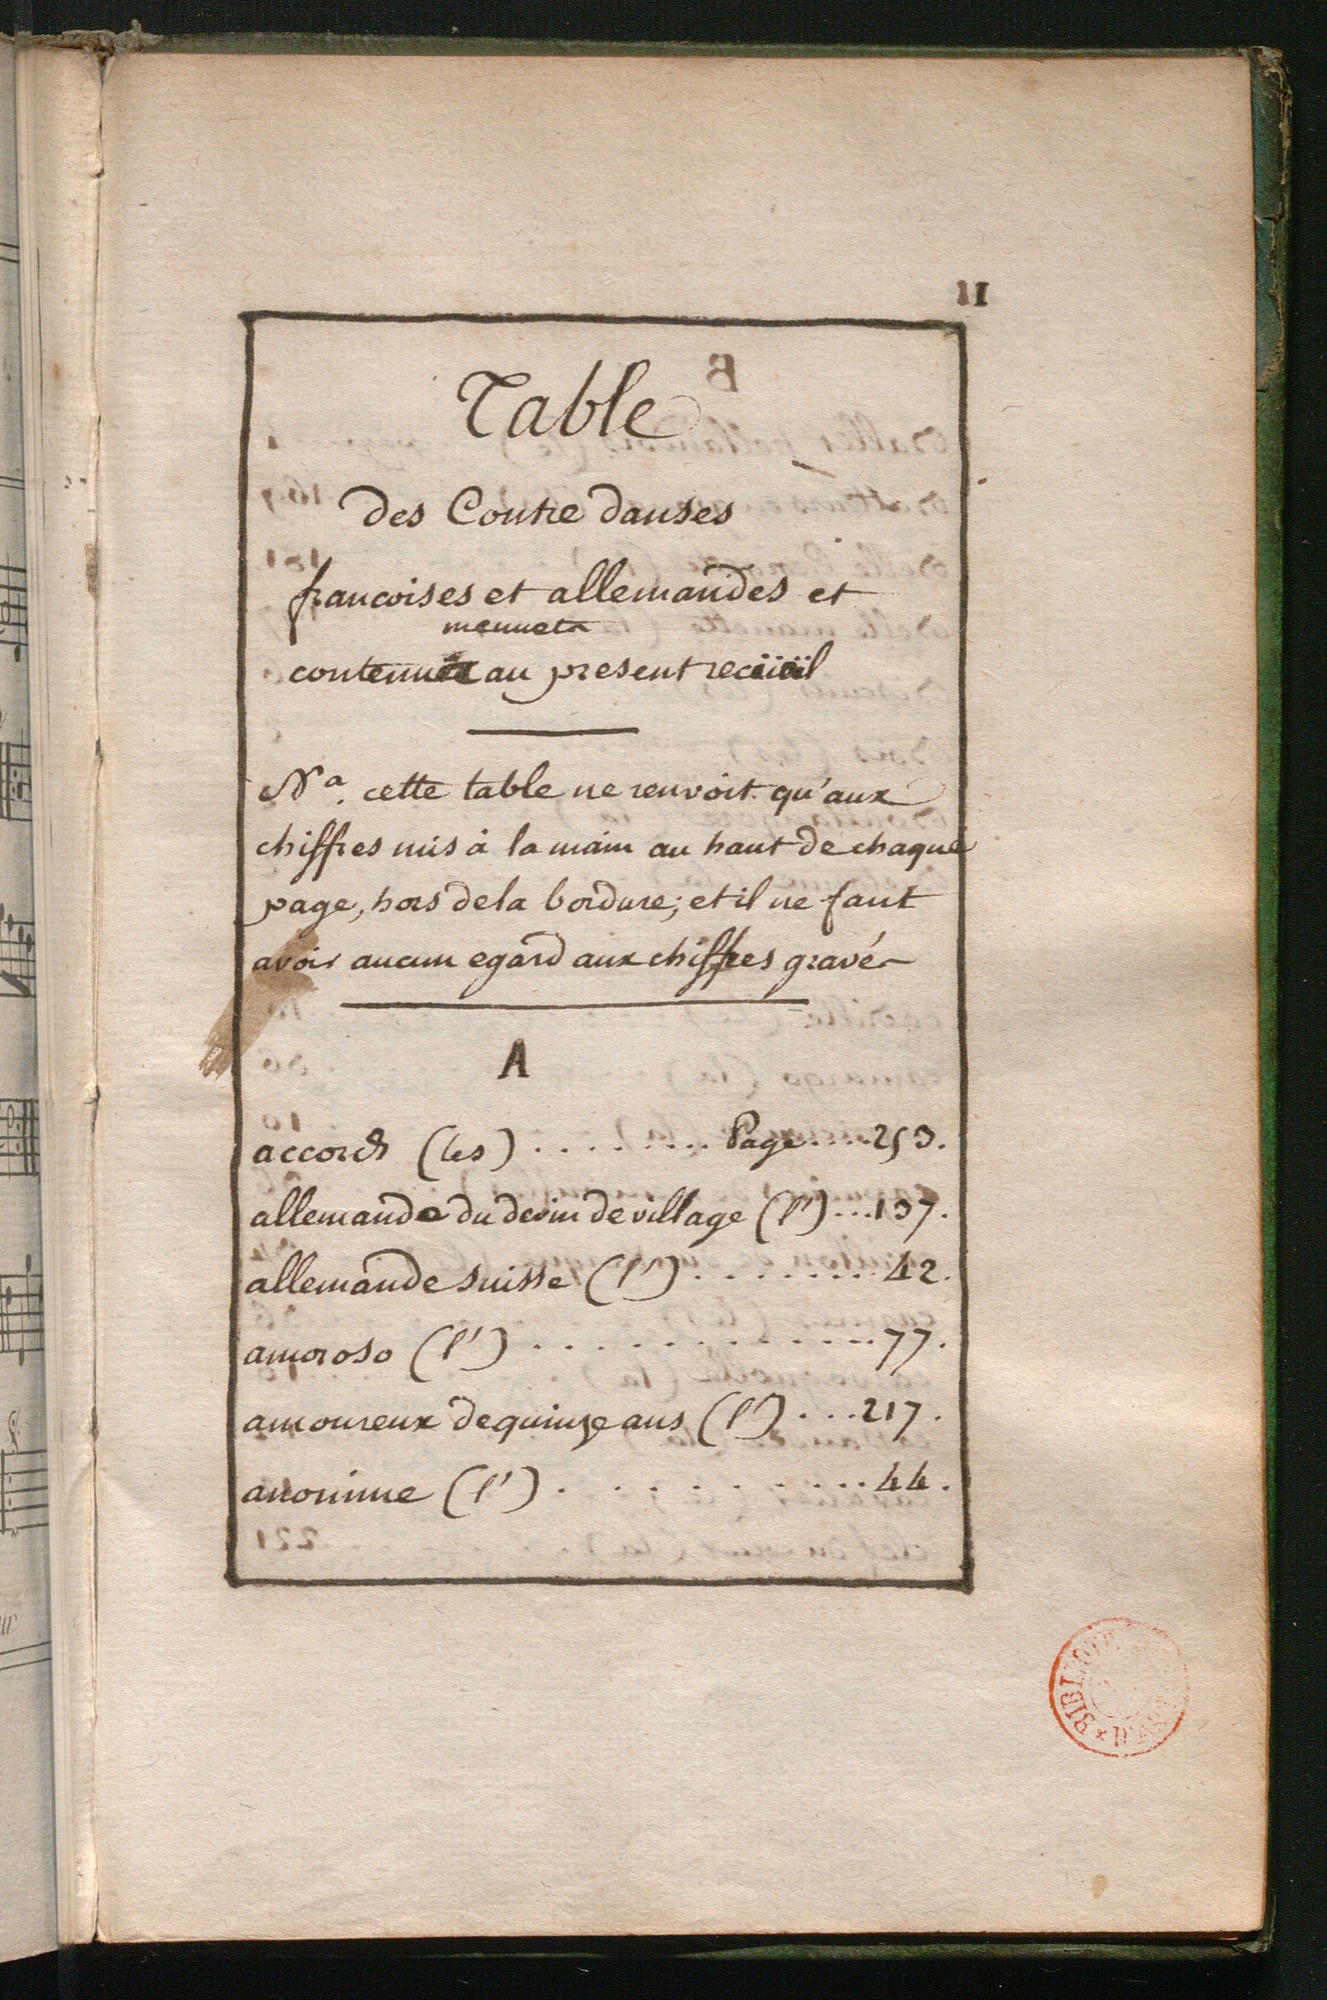 II
Table
des Contre danses
francoises et allemandes et
menuets
contenues au present recüeil
Na. cette table ne renvoit qu'aux
chiffres mis à la main au haut de chaque
page, hors de la bordure; et il ne faut
avoir aucun egard aux chiffres gravés
A
accords (les) ........ Page .... 253.
allemande du devin de village (l') ... 137.
allemande suisse (l') ........ 42.
amoroso (l') ............. 77.
amoureux de quinze ans (l') .... 217.
anonime (l') .......... 44.